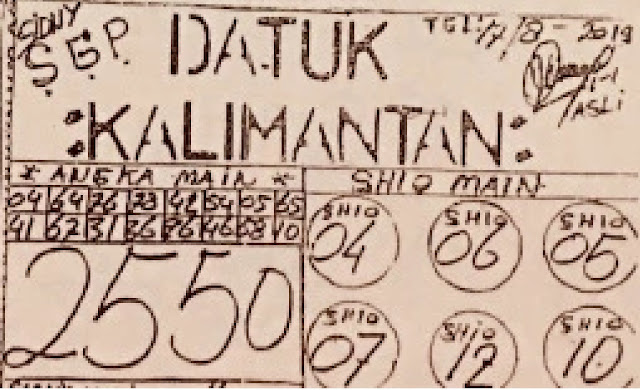 SIDNY
S.G.P. DATUK
TGL: 17/8-2019
ASLI
:KALIMANTAN:
* ANEKA MAIN *
04 64 26 23 42 54 05 65
41 62 31 36 76 46 58 10
2550
SHIO MAIN
SHIO 04 SHIO 06 SHIO 05
SHIO 07 SHIO 12 SHIO 10